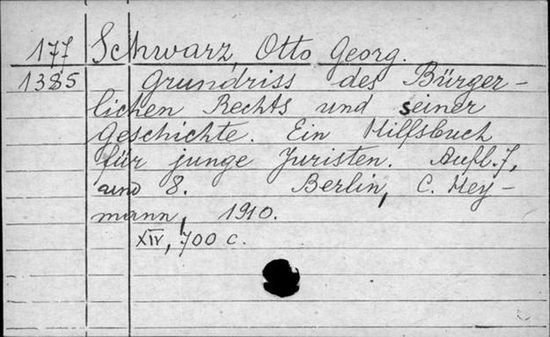 177 Schwarz, Otto Georg.
1385 Grundriss des Bürger-
lichen Rechts und seiner
Geschichte. Ein Hilfsbuch
für junge Juristen. Aufl. 7,
und 8. Berlin, C. Hey-
mann, 1910.
XIV, 700 c.